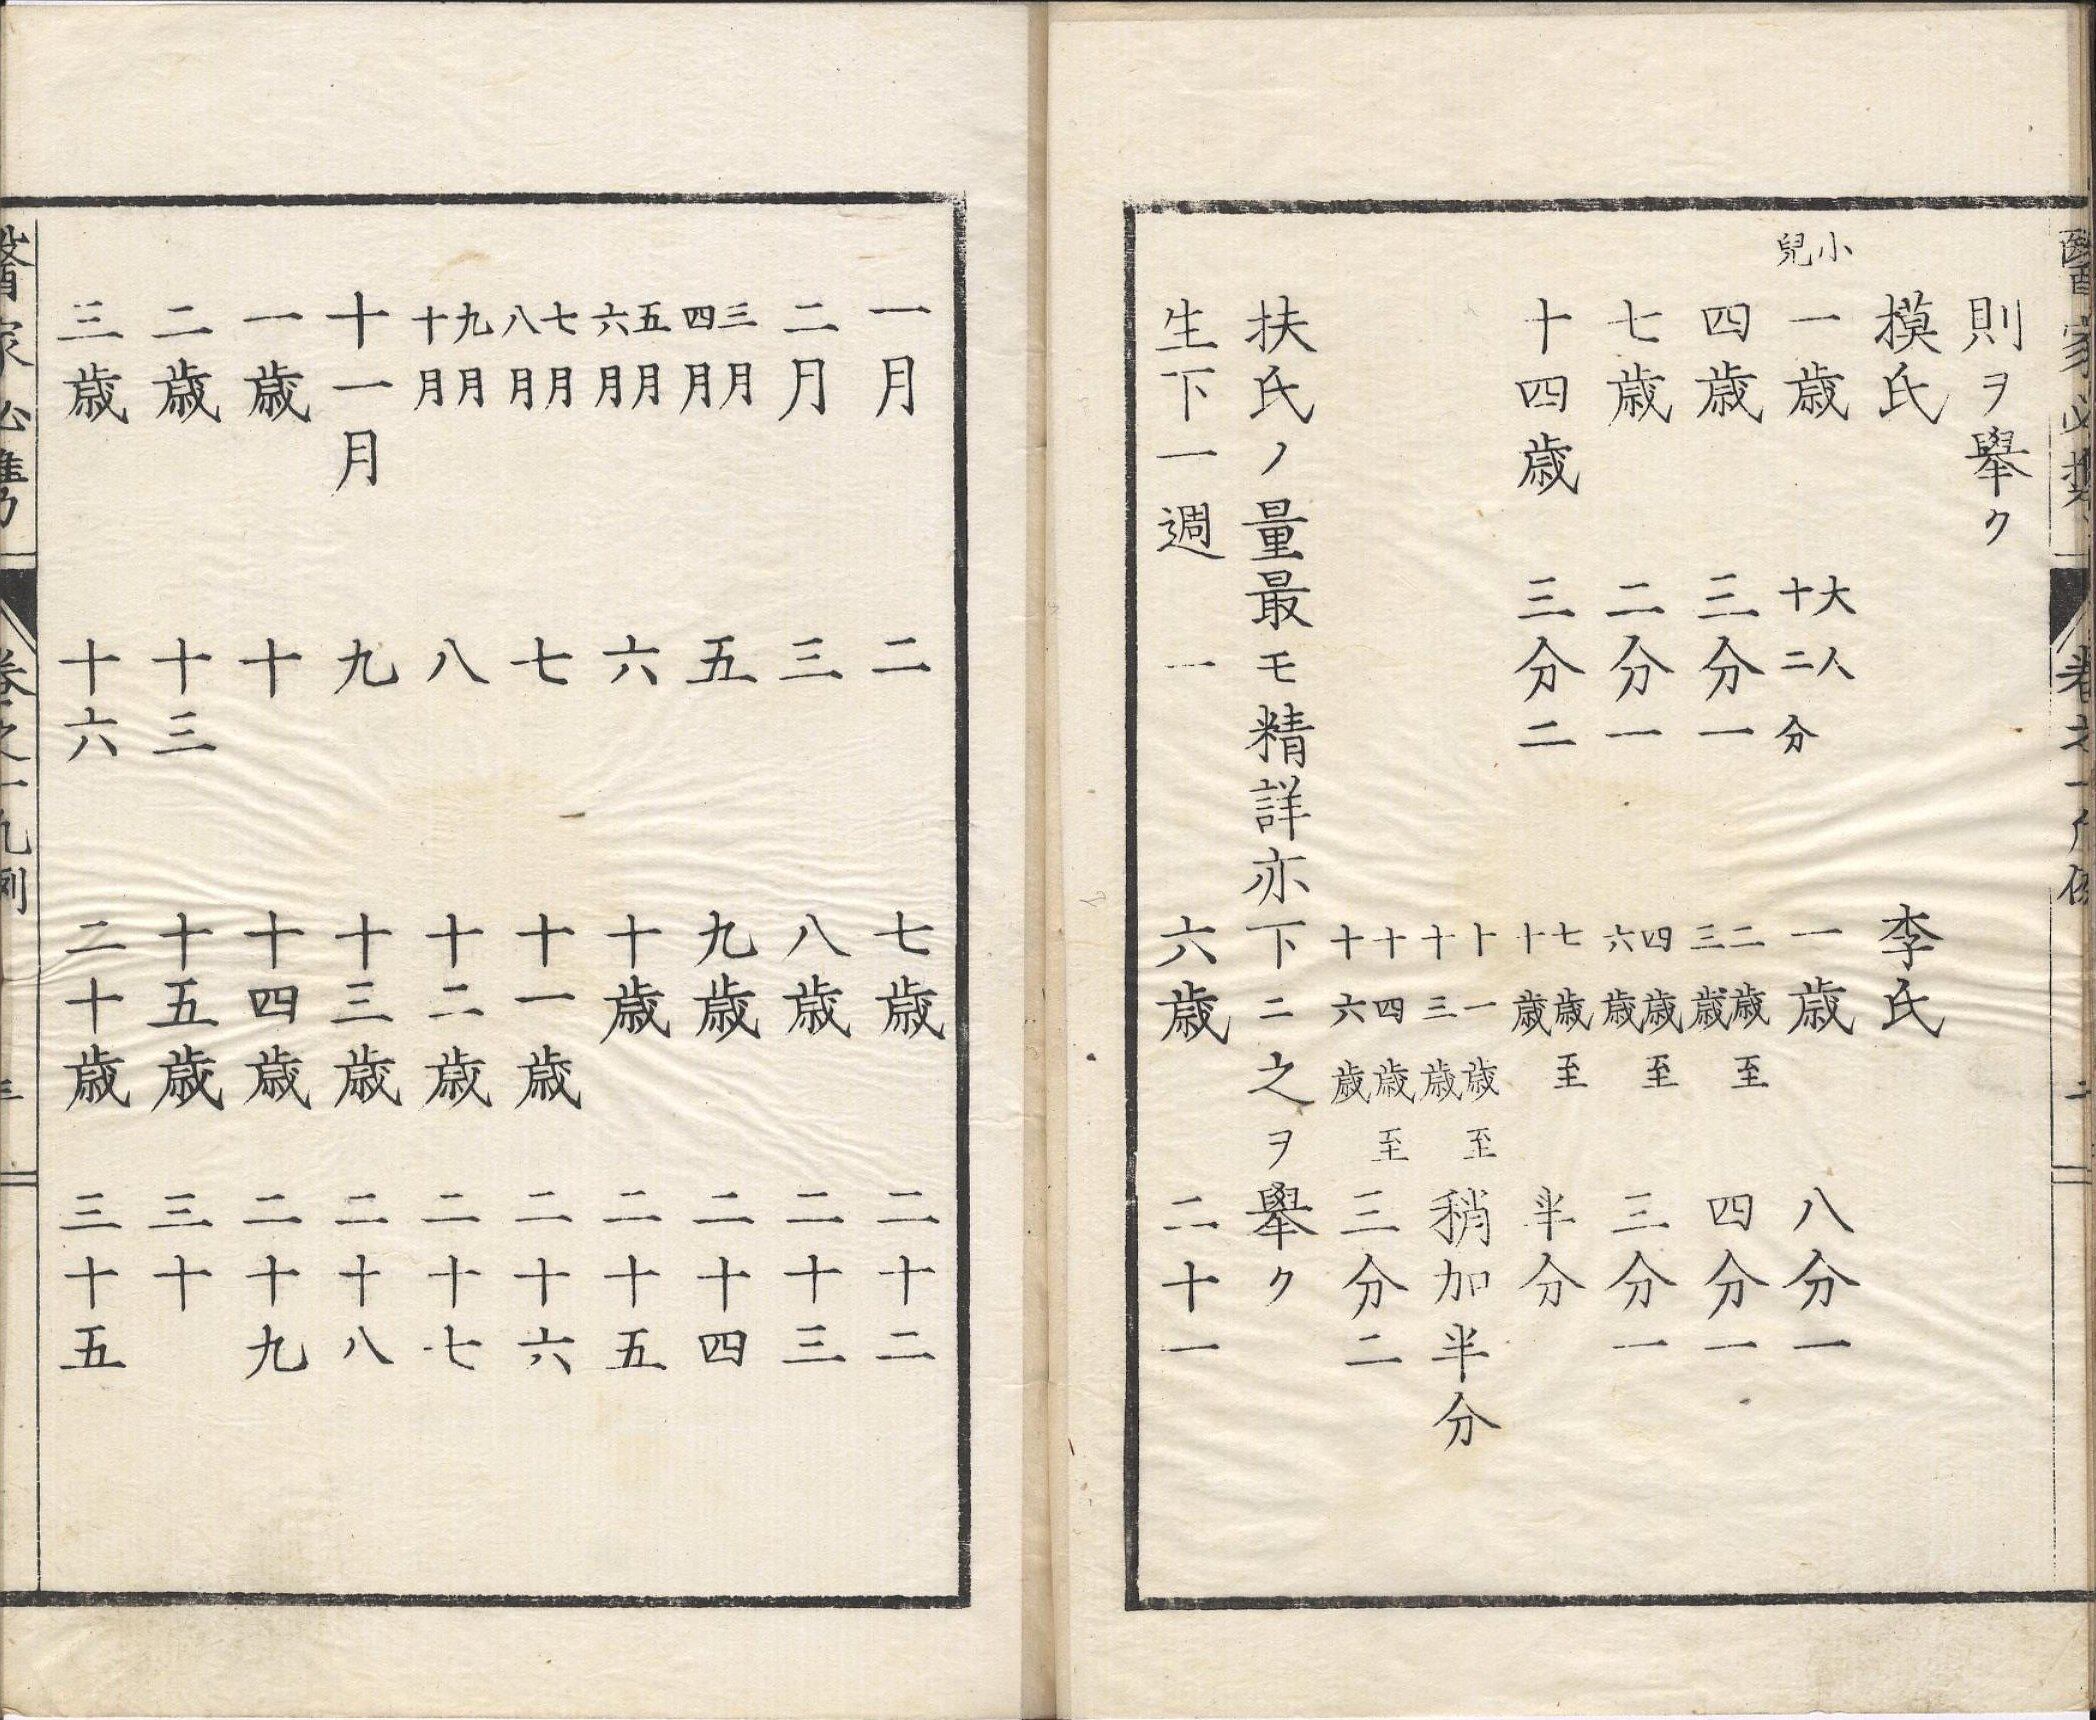 則ヲ擧ク
模氏　李氏
小兒一歳　大人十二分　一歳　八分一
四歳　三分一　二歳至三歳　四分一
七歳　二分一　四歳至六歳　三分一
十四歳　三分二　七歳至十歳　半分
十一歳至十三歳　稍加半分
十四歳至十六歳　三分二
扶氏ノ量最モ精詳亦下ニ之ヲ擧ク
生下一週　一　六歳　二十一
一月　二　七歳　二十二
二月　三　八歳　二十三
三月四月　五　九歳　二十四
五月六月　六　十歳　二十五
七月八月　七　十一歳　二十六
九月十月　八　十二歳　二十七
十一月　九　十三歳　二十八
一歳　十　十四歳　二十九
二歳　十三　十五歳　三十
三歳　十六　二十歳　三十五